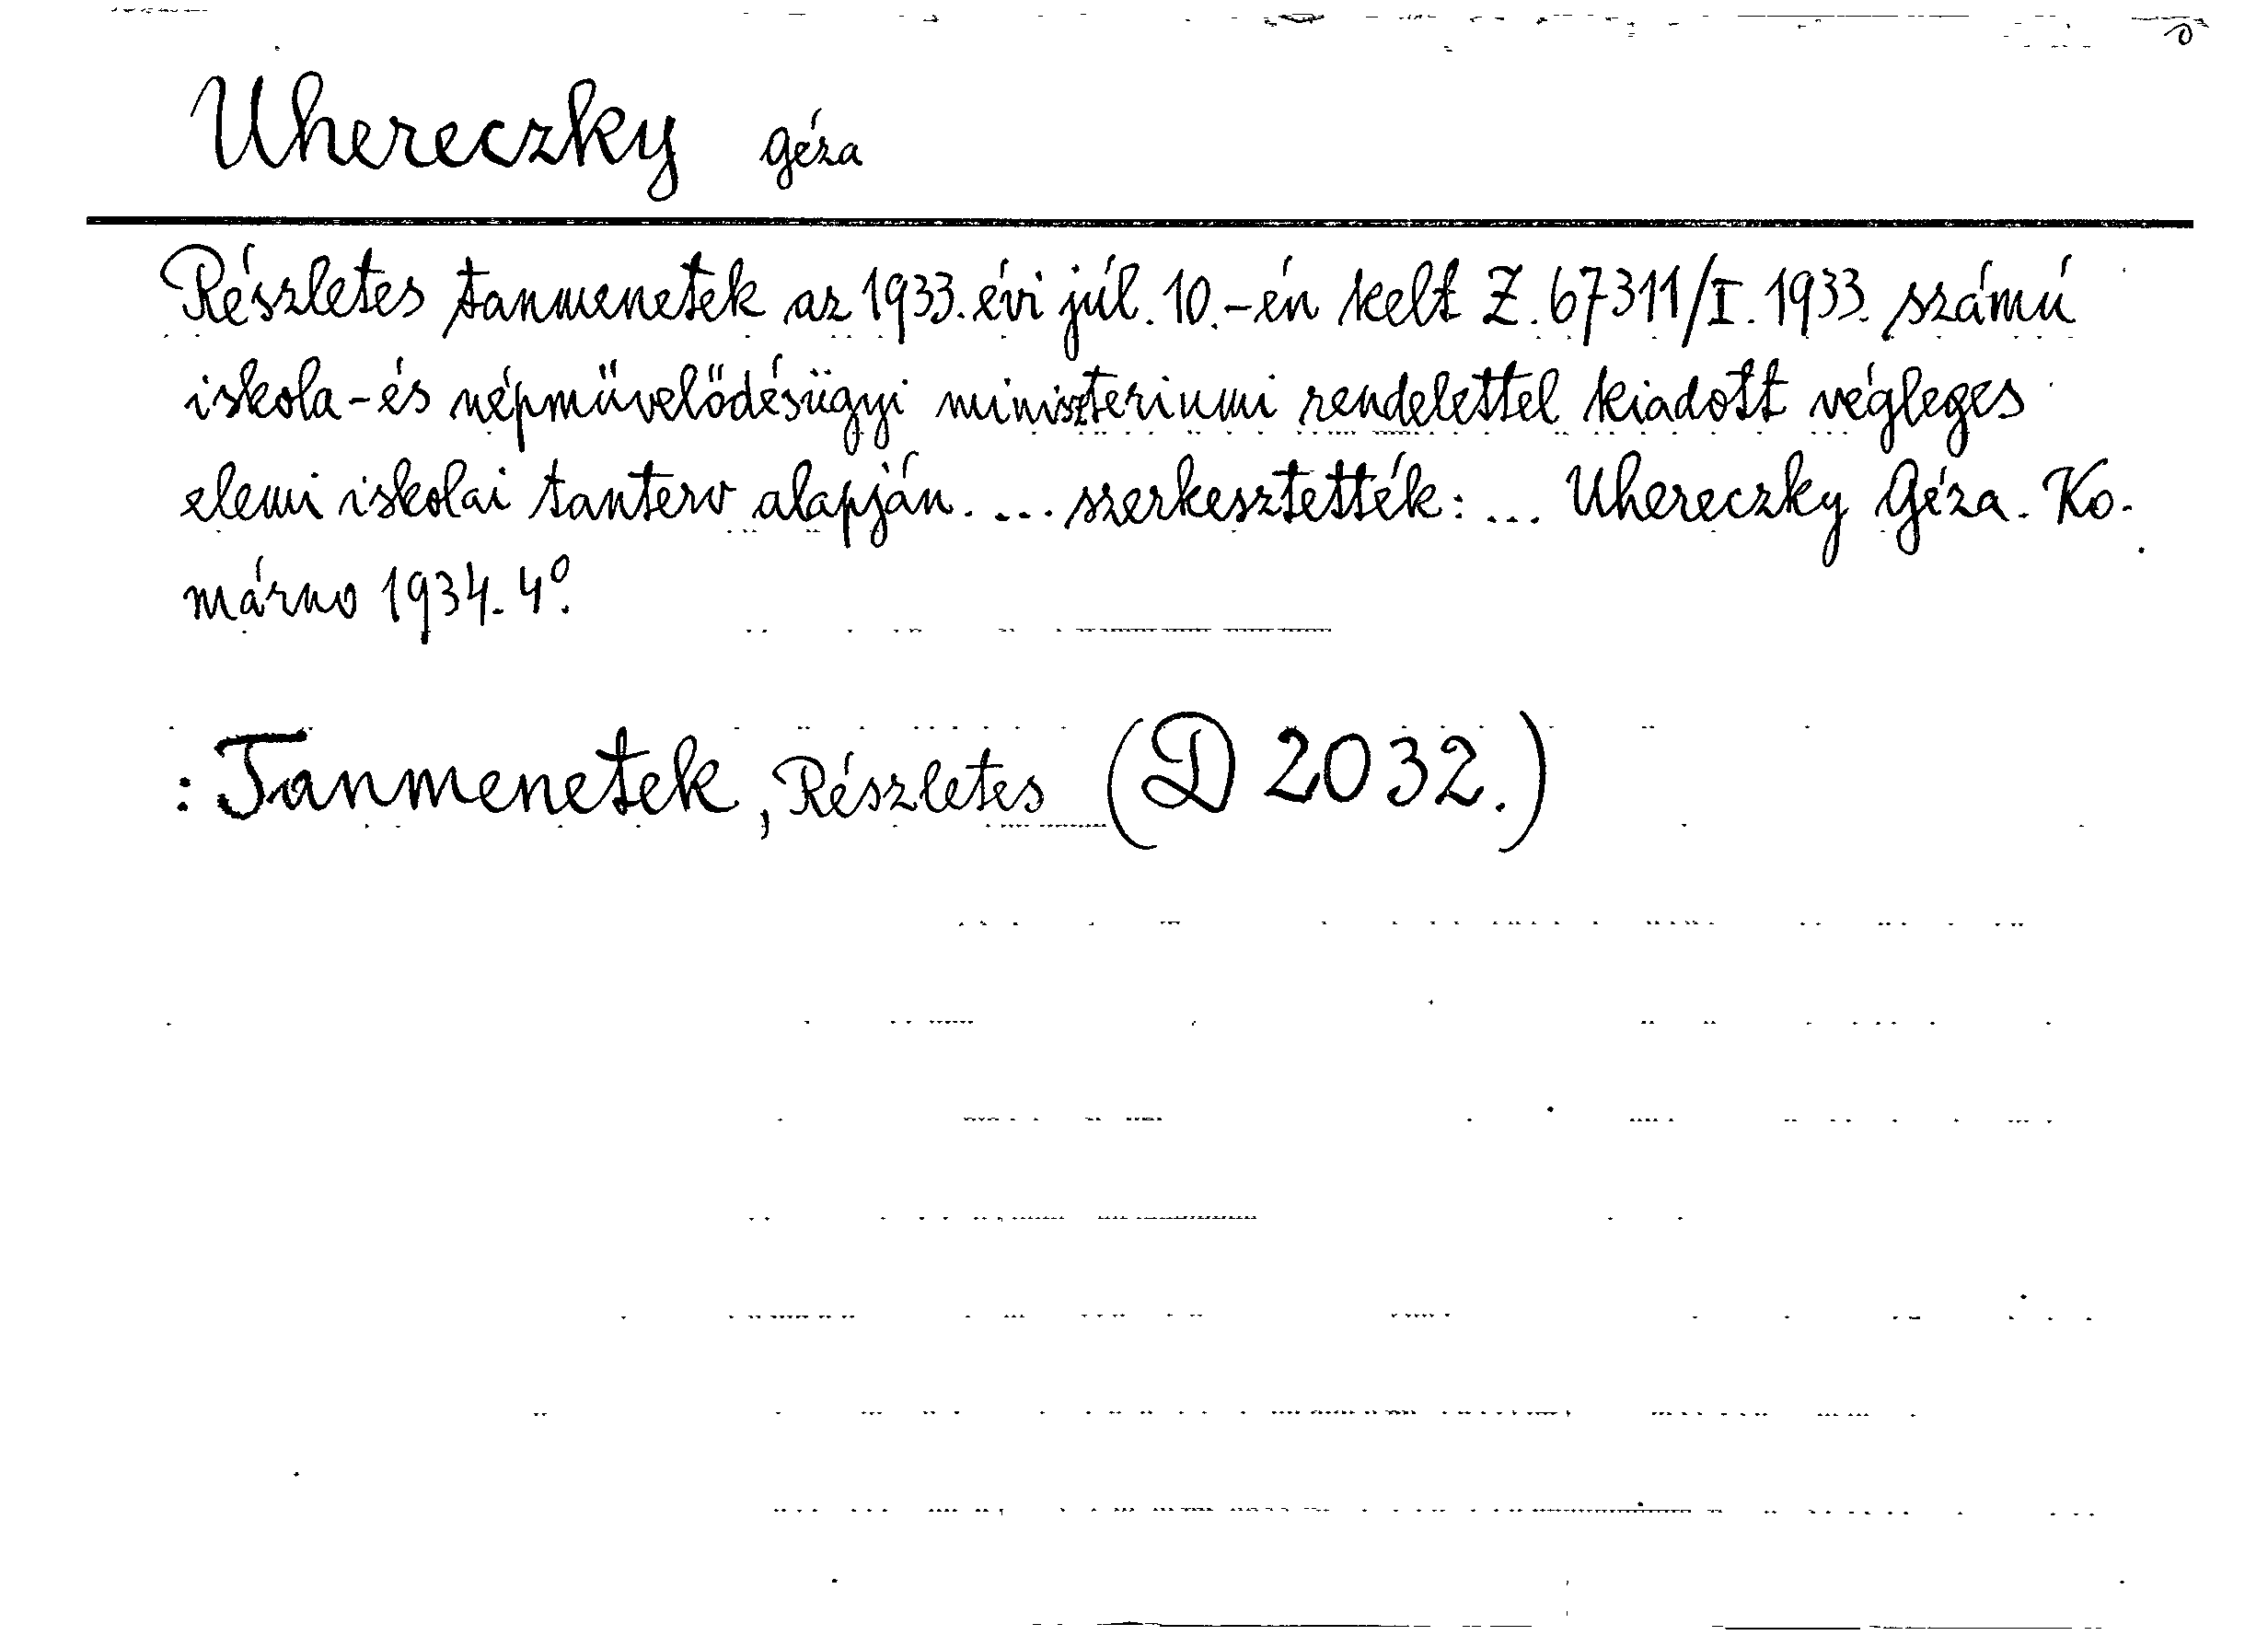 Uhereczky Géza
Részletes tanmenetek az 1933. évi júl. 10.-én kelt Z. 67311/I. 1933. számú
iskola-és népművelődésügyi miniszteriumi rendelettel kiadott végleges
elemi iskolai tanterv alapján. ... szerkesztették: ... Uhereczky Géza. Ko-
márno 1934. 4°.
: Tanmenetek, Részletes (D 2032.)